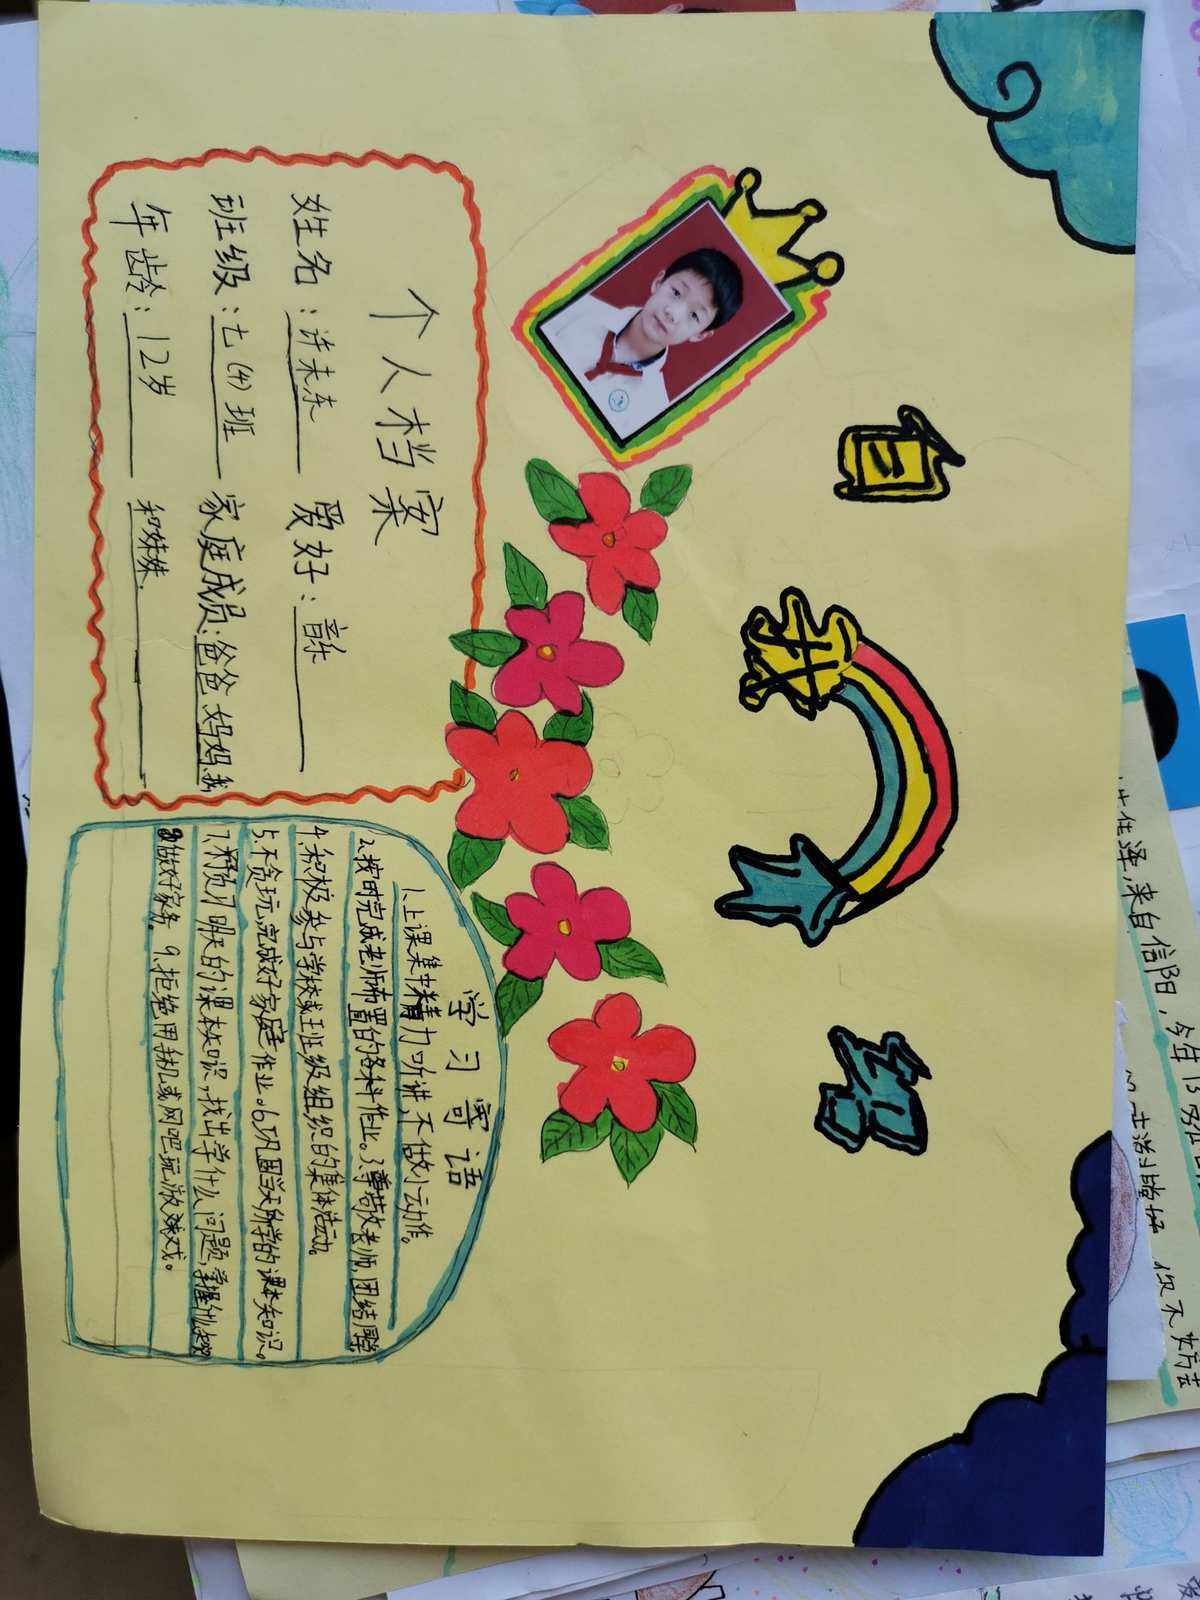 自我介绍
个人档案
姓名：许未东 爱好：音乐
班级：七(4)班 家庭成员：爸爸妈妈我
年龄：12岁 和妹妹.
学习寄语
1、上课集中精力听讲，不做小动作。
2、按时完成老师布置的各科作业。3、尊敬老师，团结同学
4、积极参与学校或班级组织的集体活动。
5、不贪玩，完成好家庭作业。6、巩固当天所学的课本知识。
7、预习明天的课本知识，找出学什么问题，掌握什么
做好家务。9、拒绝用手机或网吧玩游戏。
来自信阳，今年13岁
你不